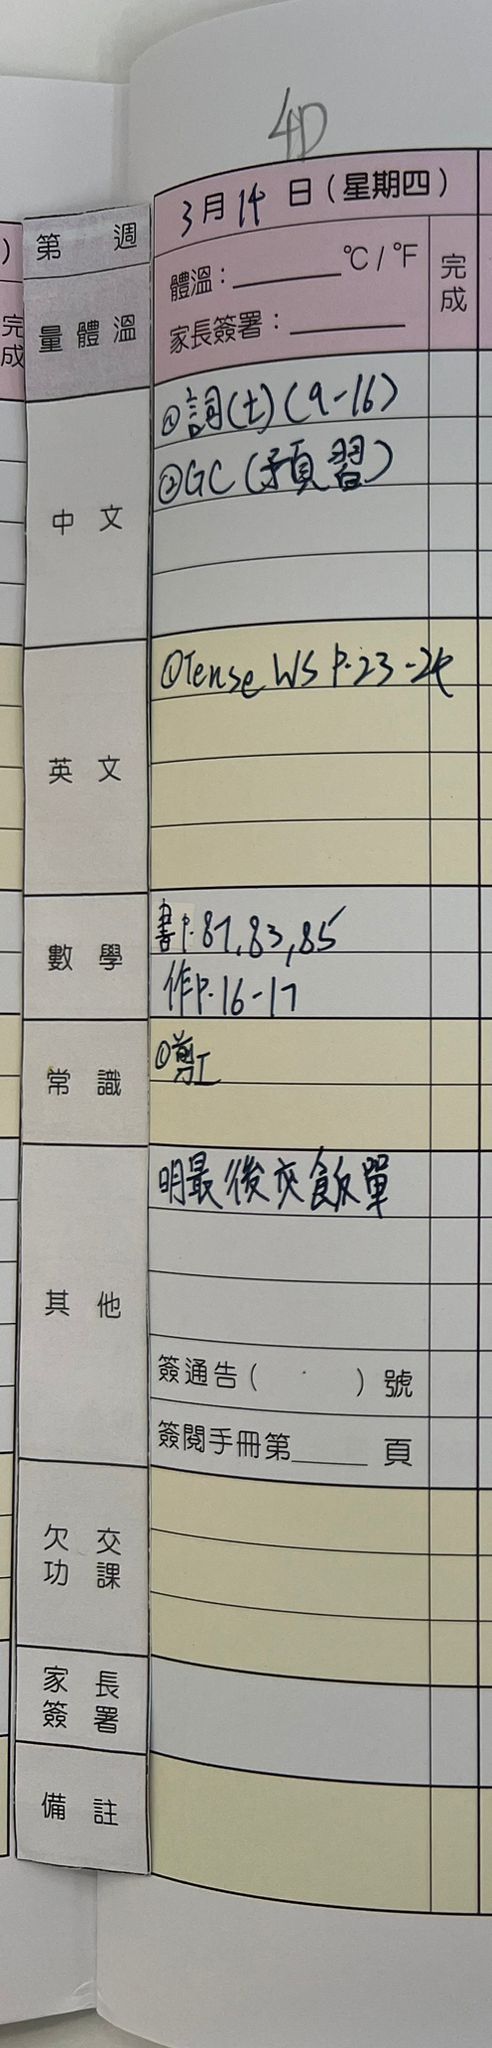 4D
3月14日(星期四)
第 週
體溫：______°C/°F
完成
量體溫
家長簽署：______
完成
中文
①詞(七)(9-16)
②GC(預習)
英文
①Tense WS P.23-24
數學
書P.81,83,85
作P.16-17
常識
①剪工
其他
明最後交飯單
簽通告( )號
簽閱手冊第_____頁
欠交功課
家長簽署
備註